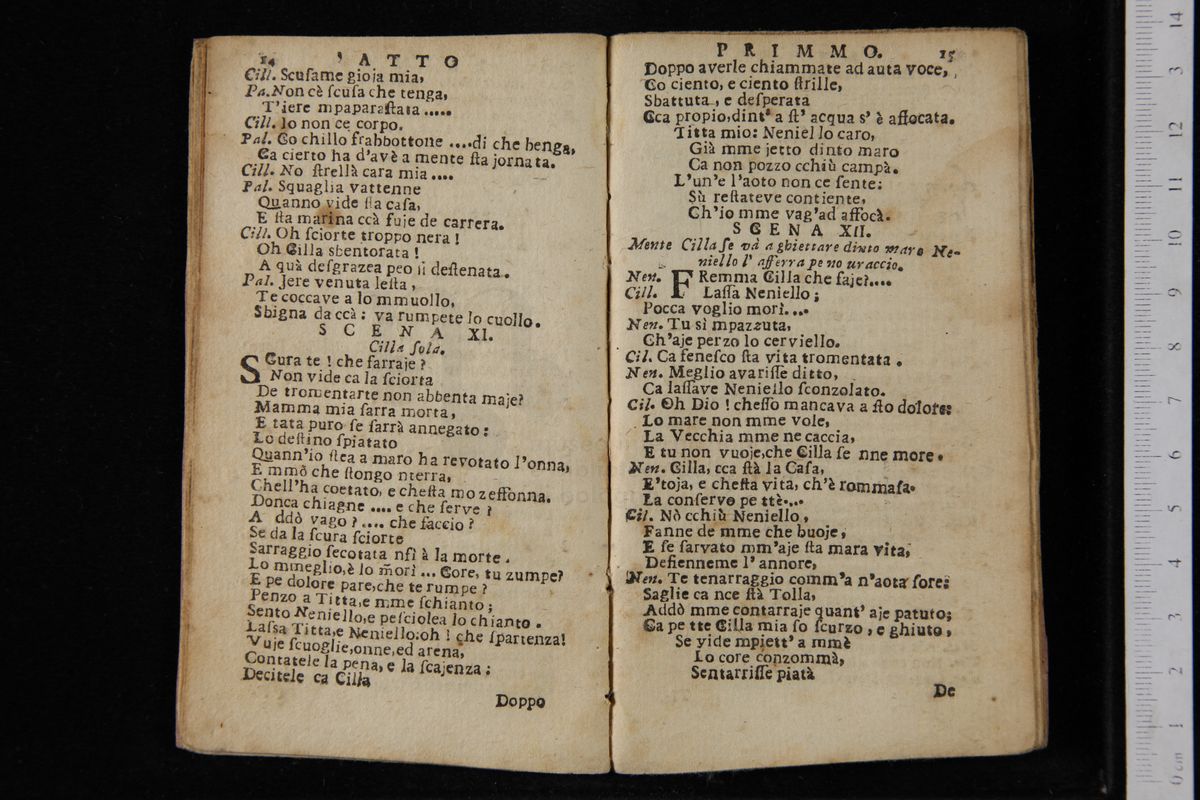 14 'ATTO
Cill. Scusame gioja mia,
Pa. Non cè scusa che tenga,
T'iere mpaparastata .....
Cill. Io non ce corpo.
Pal. Co chillo frabbottone ....di che benga,
Ca cierto ha d'avè a mente sta jornata.
Cill. No strellà cara mia ....
Pal. Squaglia vattenne
Quanno vide sta casa,
E sta marina ccà fuje de carrera.
Cill. Oh sciorte troppo nera !
Oh Cilla sbentorata !
A quà desgrazea peo si destenata.
Pal. Jere venuta lesta,
Te coccave a lo mmuollo,
Sbigna da ccà : va rumpete lo cuollo.
SCENA XI.
Cilla sola.
SCura te ! che farraje ?
Non vide ca la sciorta
De tromentarte non abbenta maje?
Mamma mia sarra morta,
E tata puro se sarrà annegato :
Lo destino spiatato
Quann'io stea a maro ha revotato l'onna,
E mmò che stongo nterra,
Chell'ha coetato, e chesta mo zeffonna.
Donca chiagne .... e che serve ?
A ddò vago ? .... che faccio ?
Se da la scura sciorte
Sarraggio secotata nsi à la morte.
Lo mmeglio,è lo morì ... Core, tu zumpe?
E pe dolore pare,che te rumpe ?
Penzo a Titta,e mme schianto ;
Sento Neniello,e pesciolea lo chianto.
Lassa Titta,e Neniello:oh ! che spartenza!
Vuje scuoglie,onne,ed arena,
Contatele la pena, e la scajenza :
Decitele ca Cilla
Doppo
PRIMMO. 15
Doppo averle chiammate ad auta voce,
Co ciento, e ciento strille,
Sbattuta, e desperata
Cca propio,dint' a st' acqua s' è affocata.
Titta mio: Neniello caro,
Già mme jetto dinto maro
Ca non pozzo cchiù campà.
L'un'e l'aoto non ce sente:
Sù restateve contiente,
Ch'io mme vag'ad affocà.
SCENA XII.
Mente Cilla se và a ghiettare dinto maro Ne-
niello l' afferra pe no uraccio.
Nen. FRemma Cilla che faje?....
Cill. Lassa Neniello ;
Pocca voglio morì....
Nen. Tu si mpazzuta,
Ch'aje perzo lo cerviello.
Cil. Ca fenesco sta vita tromentata .
Nen. Meglio avarisse ditto,
Ca lassave Neniello sconzolato.
Cil. Oh Dio ! chesso mancava a sto dolore:
Lo mare non mme vole,
La Vecchia mme ne caccia,
E tu non vuoje,che Cilla se nne more.
Nen. Cilla, cca stà la Casa,
E'toja, e chesta vita, ch'è rommasa.
La conservo pe ttè....
Cil. Nò cchiù Neniello,
Fanne de mme che buoje,
E se sarvato mm'aje sta mara vita,
Defienneme l'annore,
Nen. Te tenarraggio comm'a n'aota sore:
Saglie ca nce stà Tolla,
Addò mme contarraje quant' aje patuto;
Ca pe tte Cilla mia so scurzo, e ghiuto,
Se vide mpiett' a mmè
Lo core conzommà,
Sentarrisse piatà
De